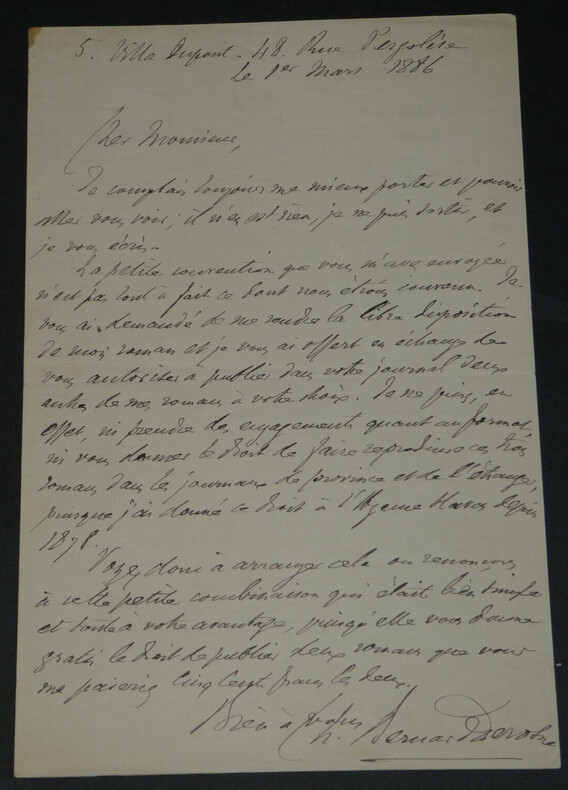 5. Villa Dupont - 48. Rue Pergolèse
Le 1er Mars 1886
Cher Monsieur,
Je comptais toujours me mieux porter et pouvoir
aller vous voir; il n'en est rien, je ne puis sortir, et
je vous écris.
La petite convention que vous m'avez envoyée
n'est pas tout à fait ce dont nous étions convenu. Je
vous ai demandé de me rendre la libre disposition
de mon roman et je vous ai offert en échange de
vous autoriser à publier dans votre journal deux
autres de mes romans à votre choix. Je ne puis, en
effet, ni prendre des engagements quant au format,
ni vous donner le droit de faire reproduire ces trois
romans dans les journaux de province et de l'étranger,
puisque j'ai donné ce droit à l'Agence Havas depuis
1878.
Voyez donc à arranger cela ou renonçons
à cette petite combinaison qui était bien simple
et toute à votre avantage, puisqu'elle vous donne
gratis le droit de publier deux romans que vous
me paieriez cinq cents francs les deux.
Bien à vous
Bernard Derosne